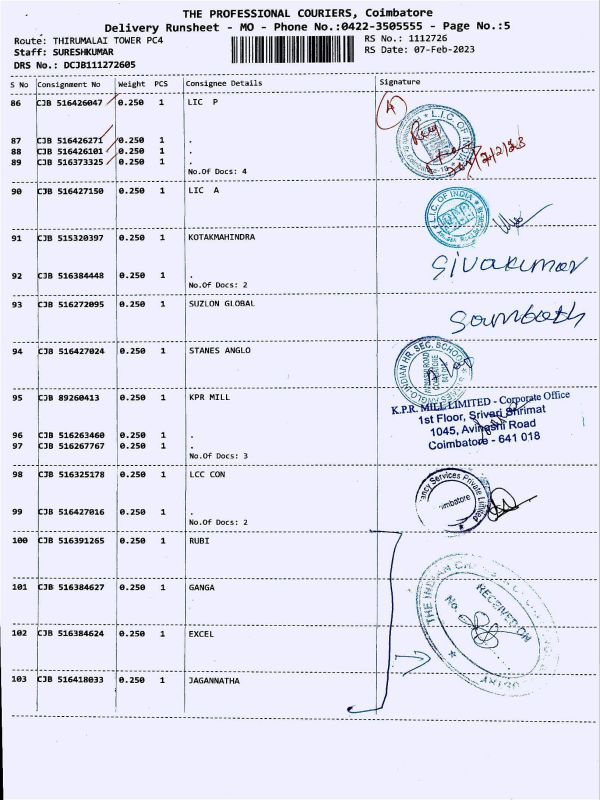 THE PROFESSIONAL COURIERS, Coimbatore
Delivery Runsheet - MO - Phone No.:0422-3505555 - Page No.:5
Route: THIRUMALAI TOWER PC4
RS No.: 1112726
Staff: SURESHKUMAR
RS Date: 07-Feb-2023
DRS No.: DCJB111272605
S No Consignment No Weight PCS Consignee Details Signature
86 CJB 516426047 0.250 1 LIC P
A
L.I.C. OF INDIA
7/2/23
87 CJB 516426271 0.250 1 .
88 CJB 516426101 0.250 1 .
89 CJB 516373325 0.250 1 .
No.Of Docs: 4
90 CJB 516427150 0.250 1 LIC A
L.I.C. OF INDIA
91 CJB 515320397 0.250 1 KOTAKMAHINDRA
Sivakumar
92 CJB 516384448 0.250 1 .
No.Of Docs: 2
93 CJB 516272095 0.250 1 SUZLON GLOBAL
Sambath
94 CJB 516427024 0.250 1 STANES ANGLO
ANGLO-INDIAN HR. SEC. SCHOOL
95 CJB 89260413 0.250 1 KPR MILL
K.P.R. MILL LIMITED - Corporate Office
1st Floor, Srivari Shrimat
1045, Avinashi Road
Coimbatore - 641 018
96 CJB 516263460 0.250 1 .
97 CJB 516267767 0.250 1 .
No.Of Docs: 3
98 CJB 516325178 0.250 1 LCC CON
ancy Services Private Limited
imbatore
99 CJB 516427016 0.250 1 .
No.Of Docs: 2
100 CJB 516391265 0.250 1 RUBI
101 CJB 516384627 0.250 1 GANGA
THE INDIAN
RECEIVED ON
No.
102 CJB 516384624 0.250 1 EXCEL
103 CJB 516418033 0.250 1 JAGANNATHA